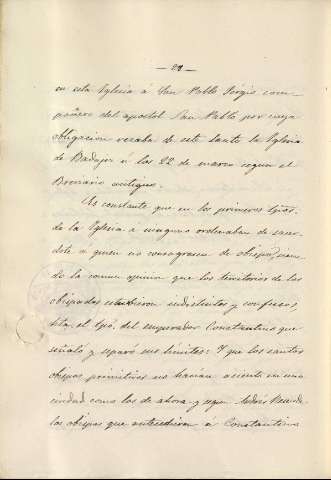 — 21 —
en esta Iglesia á San Pablo Sergio com-
pañero del apostol San Pablo por cuya
obligacion rezaba de este santo la Iglesia
de Badajoz á los 22 de marzo segun el
Breviario antiguo.
Es constante que en los primeros
de la Iglesia a ninguno ordenaban de sacer-
dote á quien no consagraran de obispo, sien-
do la comun opinion que los territorios de los
obispados estubieron indistintos y confusos,
hta. el tpo. del emperador Constantino que
señaló y separó sus limites: Y que los santos
obispos primitivos no hacian asiento en una
ciudad como los de ahora y segun
los obispos que antecedieron á Constantino